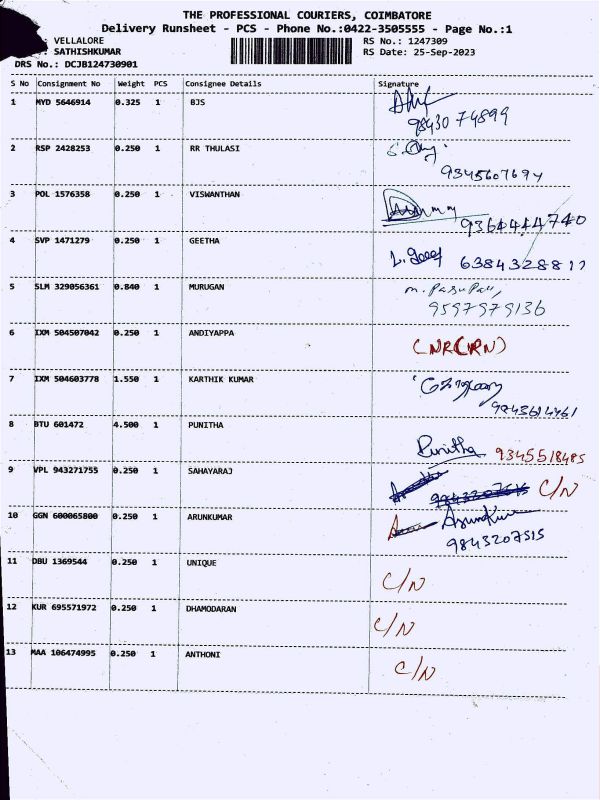 THE PROFESSIONAL COURIERS, COIMBATORE
Delivery Runsheet - PCS - Phone No.:0422-3505555 - Page No.:1
: VELLALORE RS No.: 1247309
: SATHISHKUMAR RS Date: 25-Sep-2023
DRS No.: DCJB124730901
S No Consignment No Weight PCS Consignee Details Signature
1 MYD 5646914 0.325 1 BJS
98430 74899
2 RSP 2428253 0.250 1 RR THULASI
9345607694
3 POL 1576358 0.250 1 VISWANTHAN
9364444740
4 SVP 1471279 0.250 1 GEETHA
L. Geet 6384328811
5 SLM 329056361 0.840 1 MURUGAN
9597979136
6 IXM 504507042 0.250 1 ANDIYAPPA
CNR(NRN)
7 IXM 504603778 1.550 1 KARTHIK KUMAR
9843614461
8 BTU 601472 4.500 1 PUNITHA
Punitha 9345518485
9 VPL 943271755 0.250 1 SAHAYARAJ
C/N
10 GGN 600065800 0.250 1 ARUNKUMAR
ArunKum
9843207515
11 DBU 1369544 0.250 1 UNIQUE
C/N
12 KUR 695571972 0.250 1 DHAMODARAN
C/N
13 MAA 106474995 0.250 1 ANTHONI
C/N